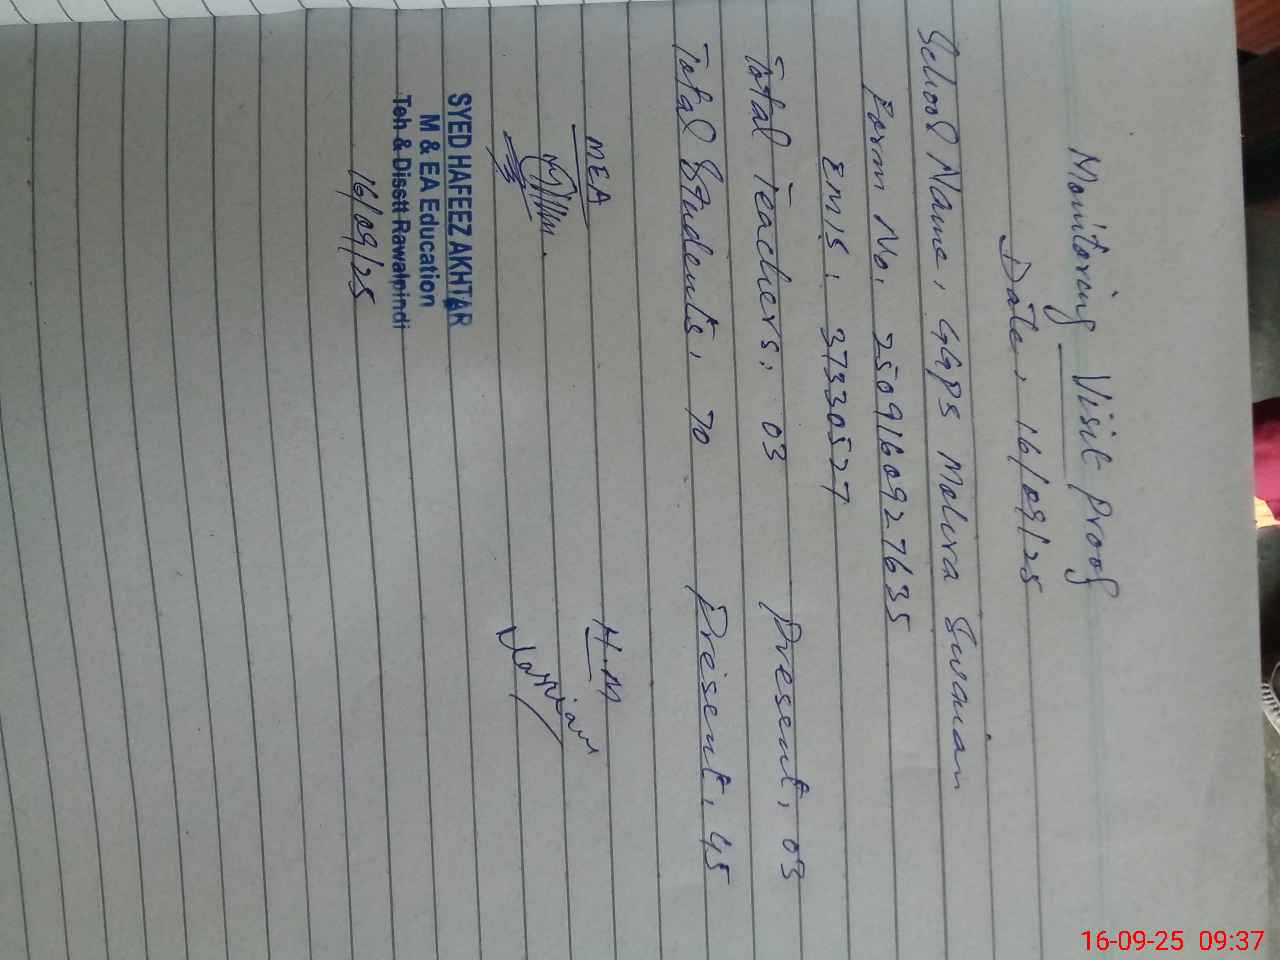 Monitoring Visit Proof
Date, 16/09/25
School Name, GGPS Mohra Swaian
Form No. 2509160927635
EMIS. 37330527
Total Teachers: 03 Present, 03
Total Students. 70 Present. 45
MEA H.M
SYED HAFEEZ AKHTAR
M & EA Education
Teh & Disstt Rawalpindi
16/09/25
16-09-25 09:37